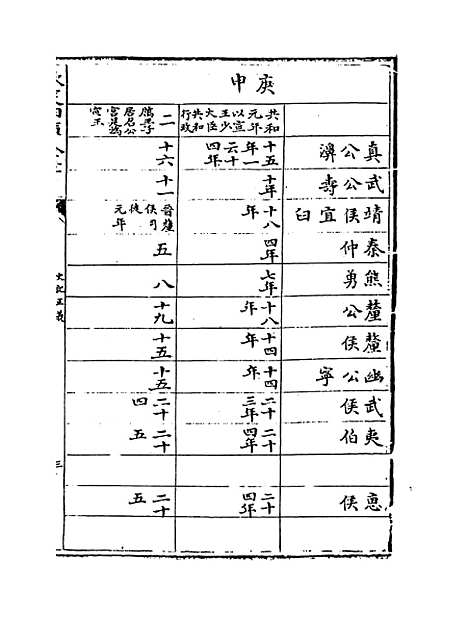 庚申
真公濞
武公壽
靖侯宜臼
秦仲
熊勇
釐公
釐侯
幽公寧
武侯
夷伯
惠侯
共和
元年
以宣
王少
大臣
共和
行政
十五
年一
云十
四年
十年
十八
年
四年
七年
十八
年
十四
年
十四
年
二十
三年
二十
四年
二十
四年
二
厲王子
居召公
宮是為
宣王
十六
十一
晉釐
侯司
徒
元年
五
八
十九
十五
十五
二十
四
二十
五
二十
五
史記正義
三